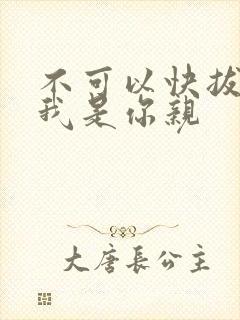 不可以快拔
我是你親
大唐長公主